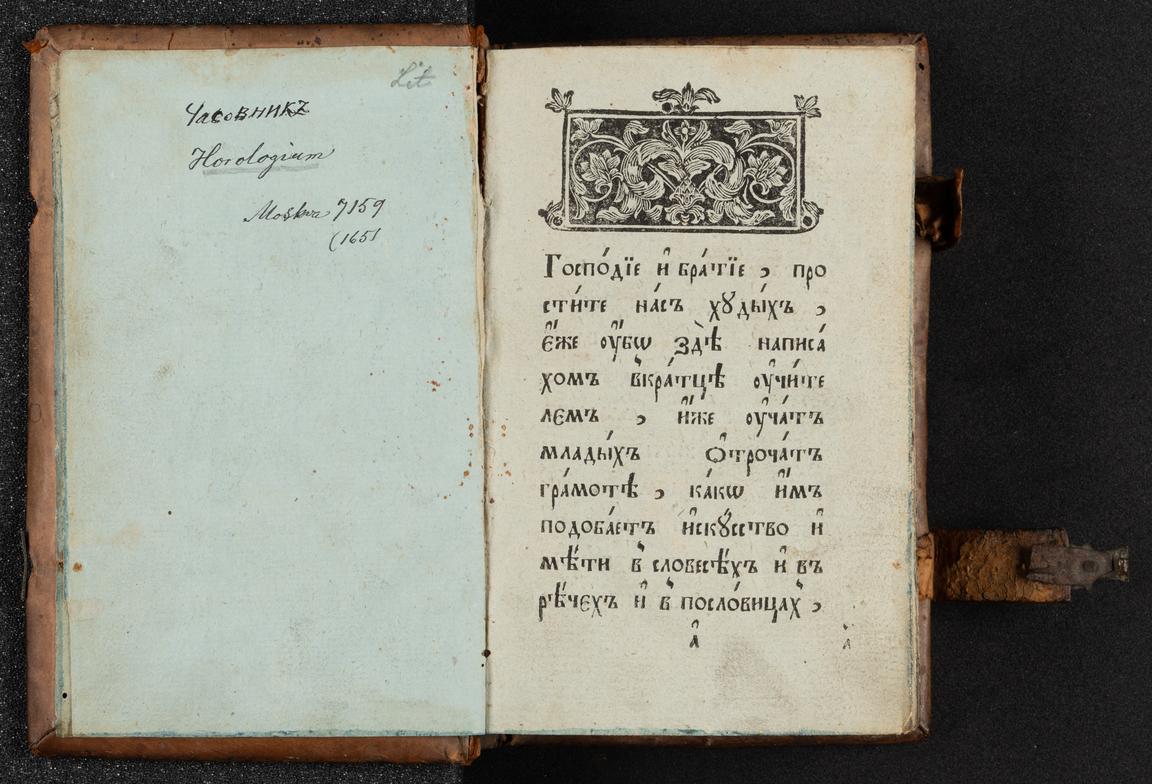 Lit
Часовникъ
Horologium
Moskwa 7159
(1651
Госпо́дїе и҆ бра́тїе , про
сти́те на́съ хꙋды́хъ ,
є҆́же ѹ҆́бѡ здѣ̀ написа́
хомъ вкра́тцѣ ѹ҆чи́те
лємъ , и҆́же ѹ҆ча́тъ
млады́хъ ѻ҆троча́тъ
гра́мотѣ , ка́кѡ и҆̀мъ
подоба́етъ и҆скꙋ́сство и҆
мѣ́ти в словесѣ́хъ и҆ въ
рѣ́чєхъ и҆ в посло́вицах ,
а҆